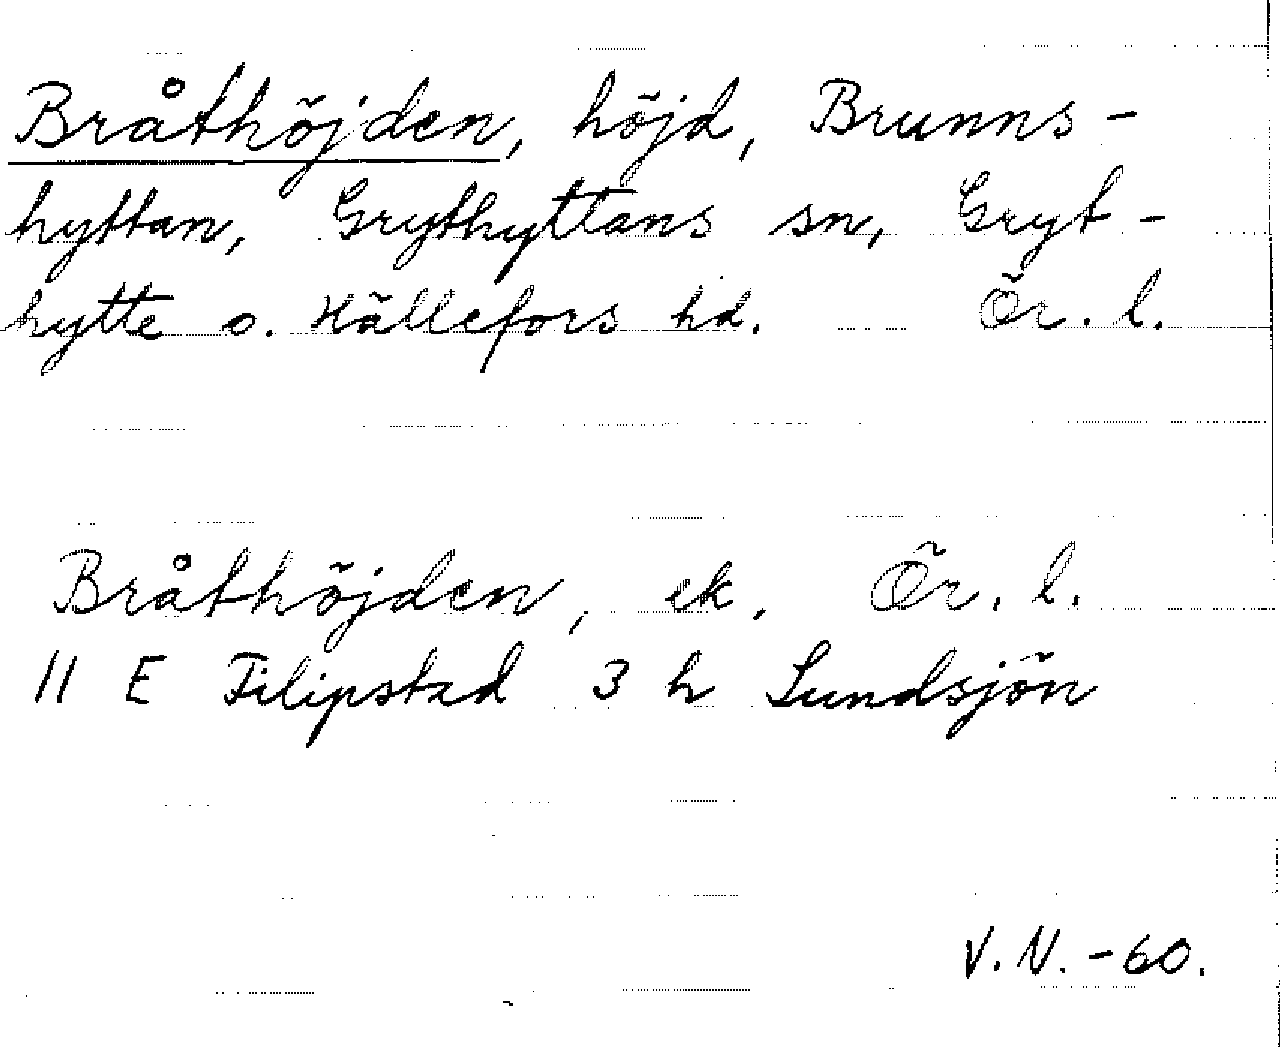 Bråthöjden, höjd, Brunns-
hyttan, Grythyttans sn, Gryt-
hytte o. Hällefors hd. Ör. l.
Bråthöjden, ek. Ör. l.
11 E Filipstad 3 h Sundsjön
V. N. -60.